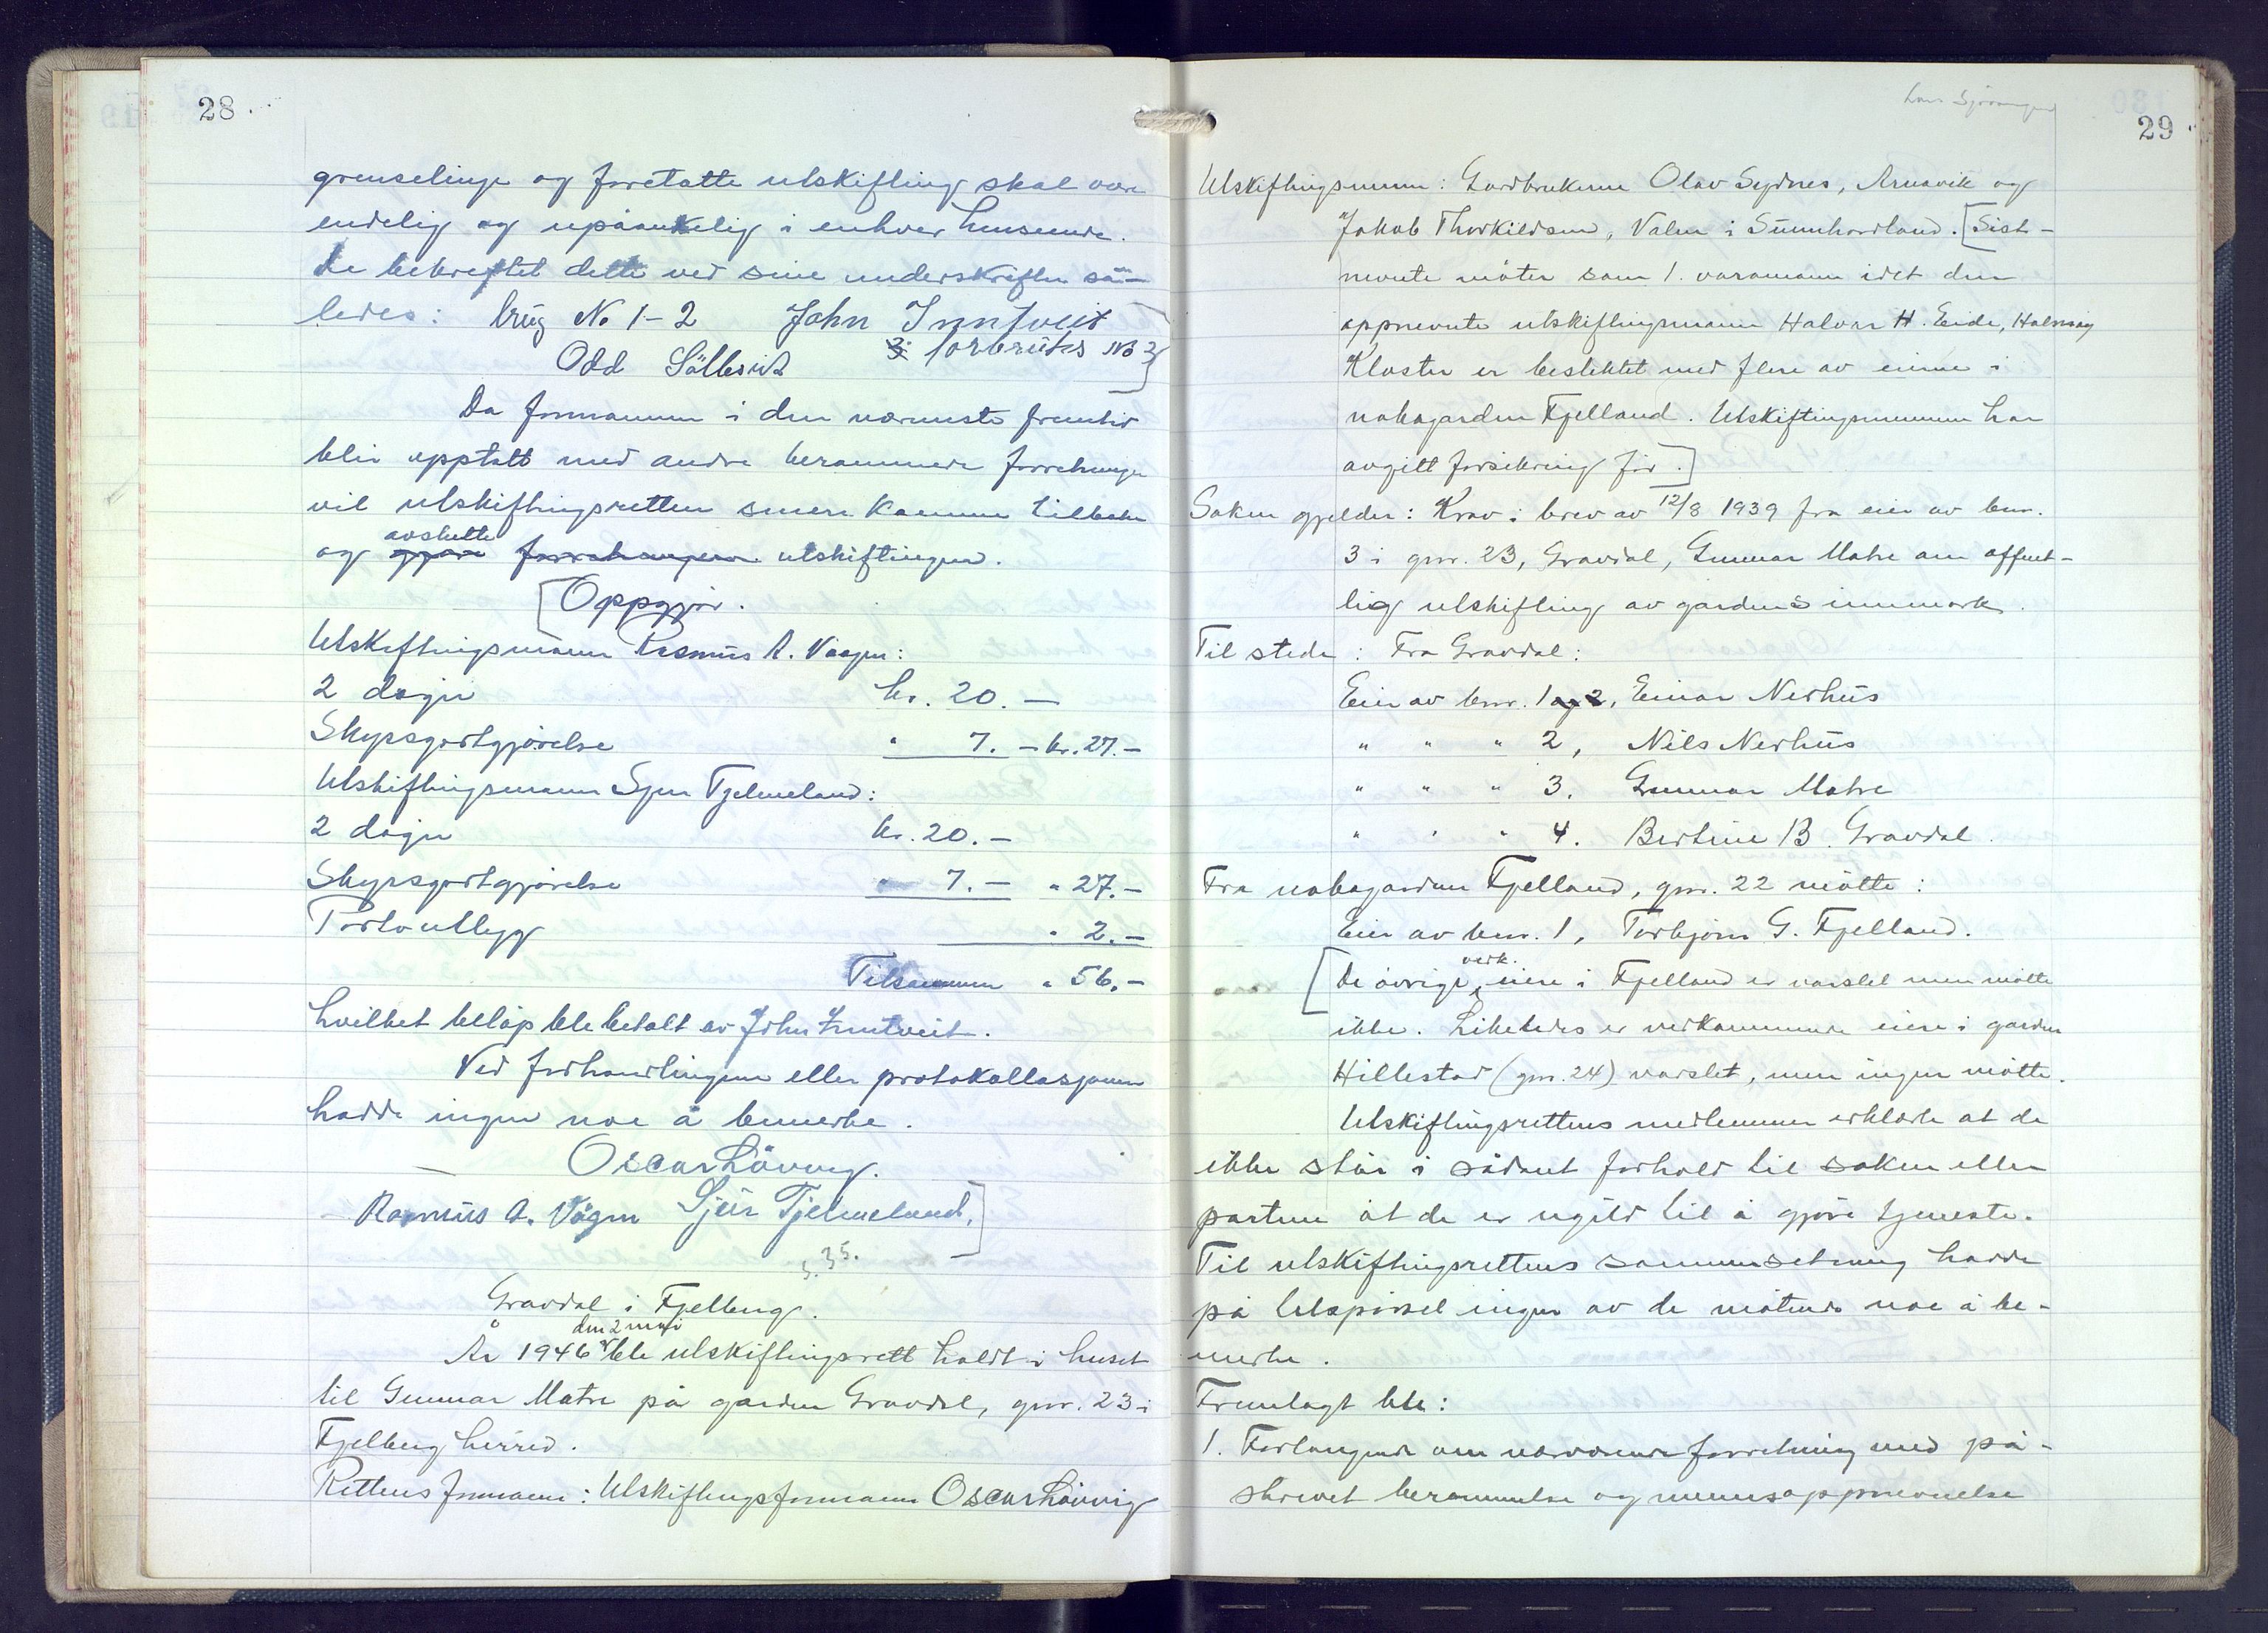 28
grenselinje og foretatte utskifting skal være
endelig og upåankelig i enhver henseende.
De bekreftet dette ved sine underskrifter så-
ledes: brug No 1-2 John Inntveit
Odd Sållesvik forbrukes No 3
Da formannen i den nærmeste fremtid
blir opptatt med andre berammede forretninger
vil utskiftingsretten senere komme tilbake
avslutte
og gjøre forretningen utskiftingen.
Oppgjør.
Utskiftingsmann Rasmus A. Vaagen:
2 dager kr. 20.—
Skyssgodtgjørelse " 7.— kr. 27.—
Utskiftingsmann Sjur Tjelmeland:
2 dager kr. 20.—
Skyssgodtgjørelse " 7.— " 27.—
Portoutlegg " 2.—
Tilsammen " 56.—
hvilket beløp ble betalt av John Inntveit.
Ved forhandlingene eller protokollasjonen
hadde ingen noe å bemerke.
Oscar Lövvig.
Rasmus A. Vågen Sjur Tjelmeland.
s. 35.
Gravdal i Fjelberg.
den 2 mai
År 1946 ble utskiftingsrett holdt i huset
til Gunnar Matre på garden Gravdal, gnr. 23 i
Fjelberg herred.
Rettens formann: Utskiftingsformann Oscar Lövvig
29
Utskiftingsmenn: Gardbrukerne Olav Sydnes, Arnavik og
Jakob Thorkildsen, Valen i Sunnhordland. [Sist-
nevnte møter som 1. varamann idet den
oppnevnte utskiftingsmann Halvar H. Eide, Halsnøy
Kloster er beslektet med flere av eierne i
nabogarden Fjelland. Utskiftingsmennene har
avgitt forsikring før.]
Saken gjelder: Krav i brev av 12/8 1939 fra eier av bnr.
3 i gnr. 23, Gravdal, Gunnar Matre om offent-
lig utskifting av gardens innmark.
Til stede: Fra Gravdal:
Eier av bnr. 1 og 2, Einar Nerhus
" " " 2, Nils Nerhus
" " " 3. Gunnar Matre
" " " 4. Bertine B. Gravdal.
Fra nabogarden Fjelland, gnr. 22 møtte:
Eier av bnr. 1, Torbjørn G. Fjelland.
vedk.
[De øvrige eiere i Fjelland er varslet men møtte
ikke. Likeledes er vedkommende eiere i garden
Hillestad (gnr. 24) varslet, men ingen møtte.
Utskiftingsrettens medlemmer erklærte at de
ikke står i sådant forhold til saken eller
partene at de er ugild til å gjøre tjeneste.
Til utskiftingsrettens sammensetning hadde
på tilspørsel ingen av de møtende noe å be-
merke.
Fremlagt ble:
1. Forlangende om nærværende forretning med på-
skrevet berammelse og mennsoppnevnelse